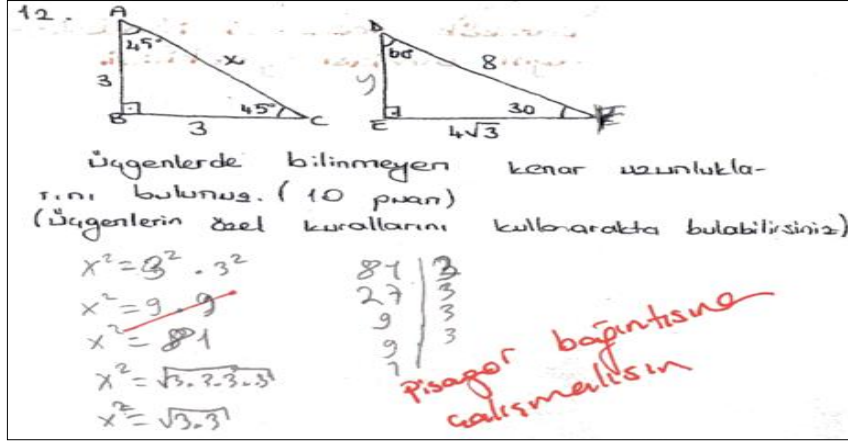 12.
A
45°
x
3
B
45°
C
3
D
60
8
y
30
E
4√3
F
Üçgenlerde bilinmeyen kenar uzunlukla-
rını bulunuz. (10 puan)
(Üçgenlerin özel kurallarını kullanarakta bulabilirsiniz)
x² = 3² . 3²
x² = 9 . 9
x² = 81
x² = √3.3.3.3
x² = √3.3
81 | 3
27 | 3
9 | 3
9 | 3
1
Pisagor bağıntısına
çalışmalısın